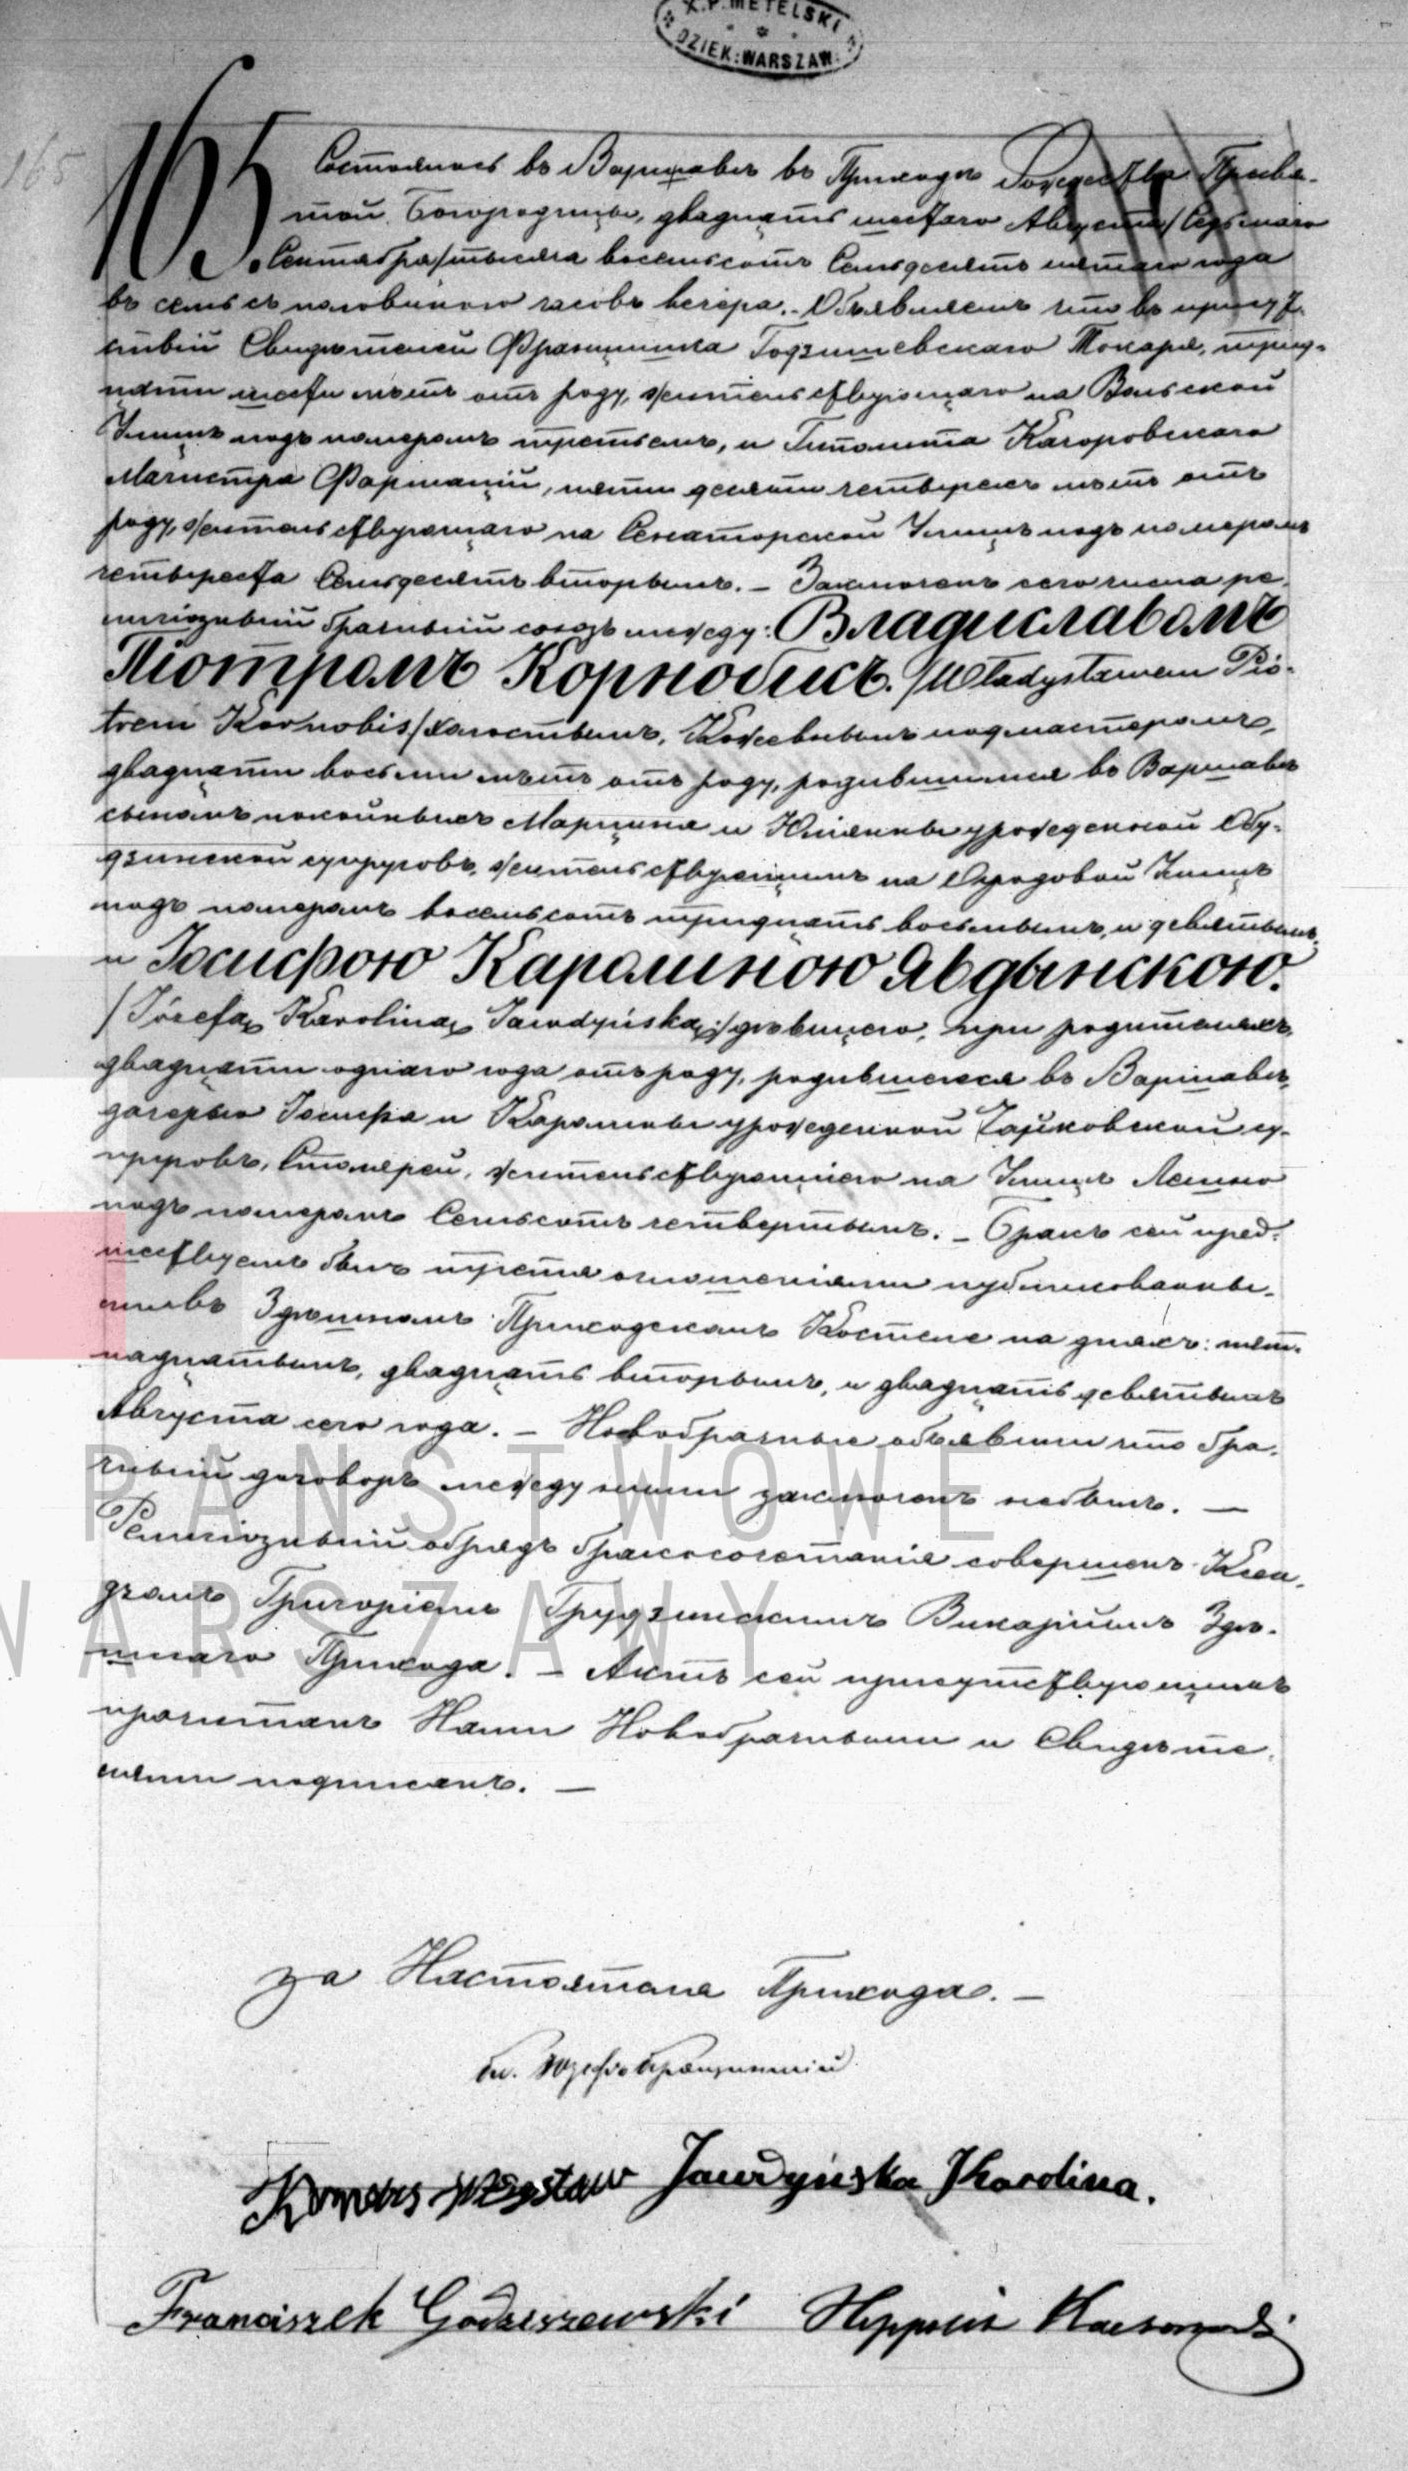 X.P. METELSKI
DZIEK: WARSZAW:
165
165. Состоялось въ Варшавѣ въ Приходѣ Рождества Пресвя-
той Богородицы, двадцать шестаго Августа /Седьмаго
Сентября/ тысяча восемьсотъ семьдесятъ пятаго года
въ семь съ половиною часовъ вечера. - Объявляемъ что въ присут-
ствіи Свидѣтелей Францишка Годзишевскаго Токаря, трид-
цати шести лѣтъ отъ роду, жительствующаго на Вольской
Улицѣ подъ номеромъ третьемъ, и Гиполита
Магистра Фармаціи, пяти десяти четырехъ лѣтъ отъ
роду, жительствующаго на Сенаторской Улицѣ подъ номеромъ
четыреста семьдесятъ вторымъ. - Заключенъ сего числа ре-
лигіозный брачный союзъ между: Владиславомъ
Піотромъ Корнобисъ. /Władysławem Pio-
trem Kornobis/ холостымъ, Кожевнымъ подмастеромъ,
двадцати восьми лѣтъ отъ роду, родившимся въ Варшавѣ
сыномъ покойныхъ Марцина и Юліянны урожденной
супруговъ, жительствующимъ на Огродовой Улицѣ
подъ номеромъ восемьсотъ тридцать восьмымъ, и девятымъ,
и Іосифою Каролиною Явдынскою.
/Józefą Karoliną Jawdyńską/ дѣвицею, при родителяхъ,
двадцати одного года отъ роду, родившеюся въ Варшавѣ,
дочерью Іосифа и Каролины урожденной Чайковской су-
пруговъ, Столярей, жительствующею на Улицѣ Лешно
подъ номеромъ Семьсотъ четвертымъ. - Бракъ сей пред-
шествуемъ былъ тремя оглашеніями публикованны-
ми въ Здѣшномъ Приходскомъ Костелѣ на дняхъ: пят-
надцатымъ, двадцать вторымъ, и двадцать девятымъ
Августа сего года. - Новобрачные объявили что бра-
чный договоръ между ними заключенъ небылъ. -
Религіозный обрядъ бракосочетанія совершенъ Ксен-
дзомъ Григоріемъ Грудзинскимъ Викаріемъ Здѣ-
шнаго Прихода. - Актъ сей присутствующимъ
прочитанъ Нами Новобрачными и Свидѣте-
лями подписанъ. -
за Настоятеля Прихода. -
Jawdyńska Karolina.
Franciszek Godziszewski
PAŃSTWOWE
WARSZAWY